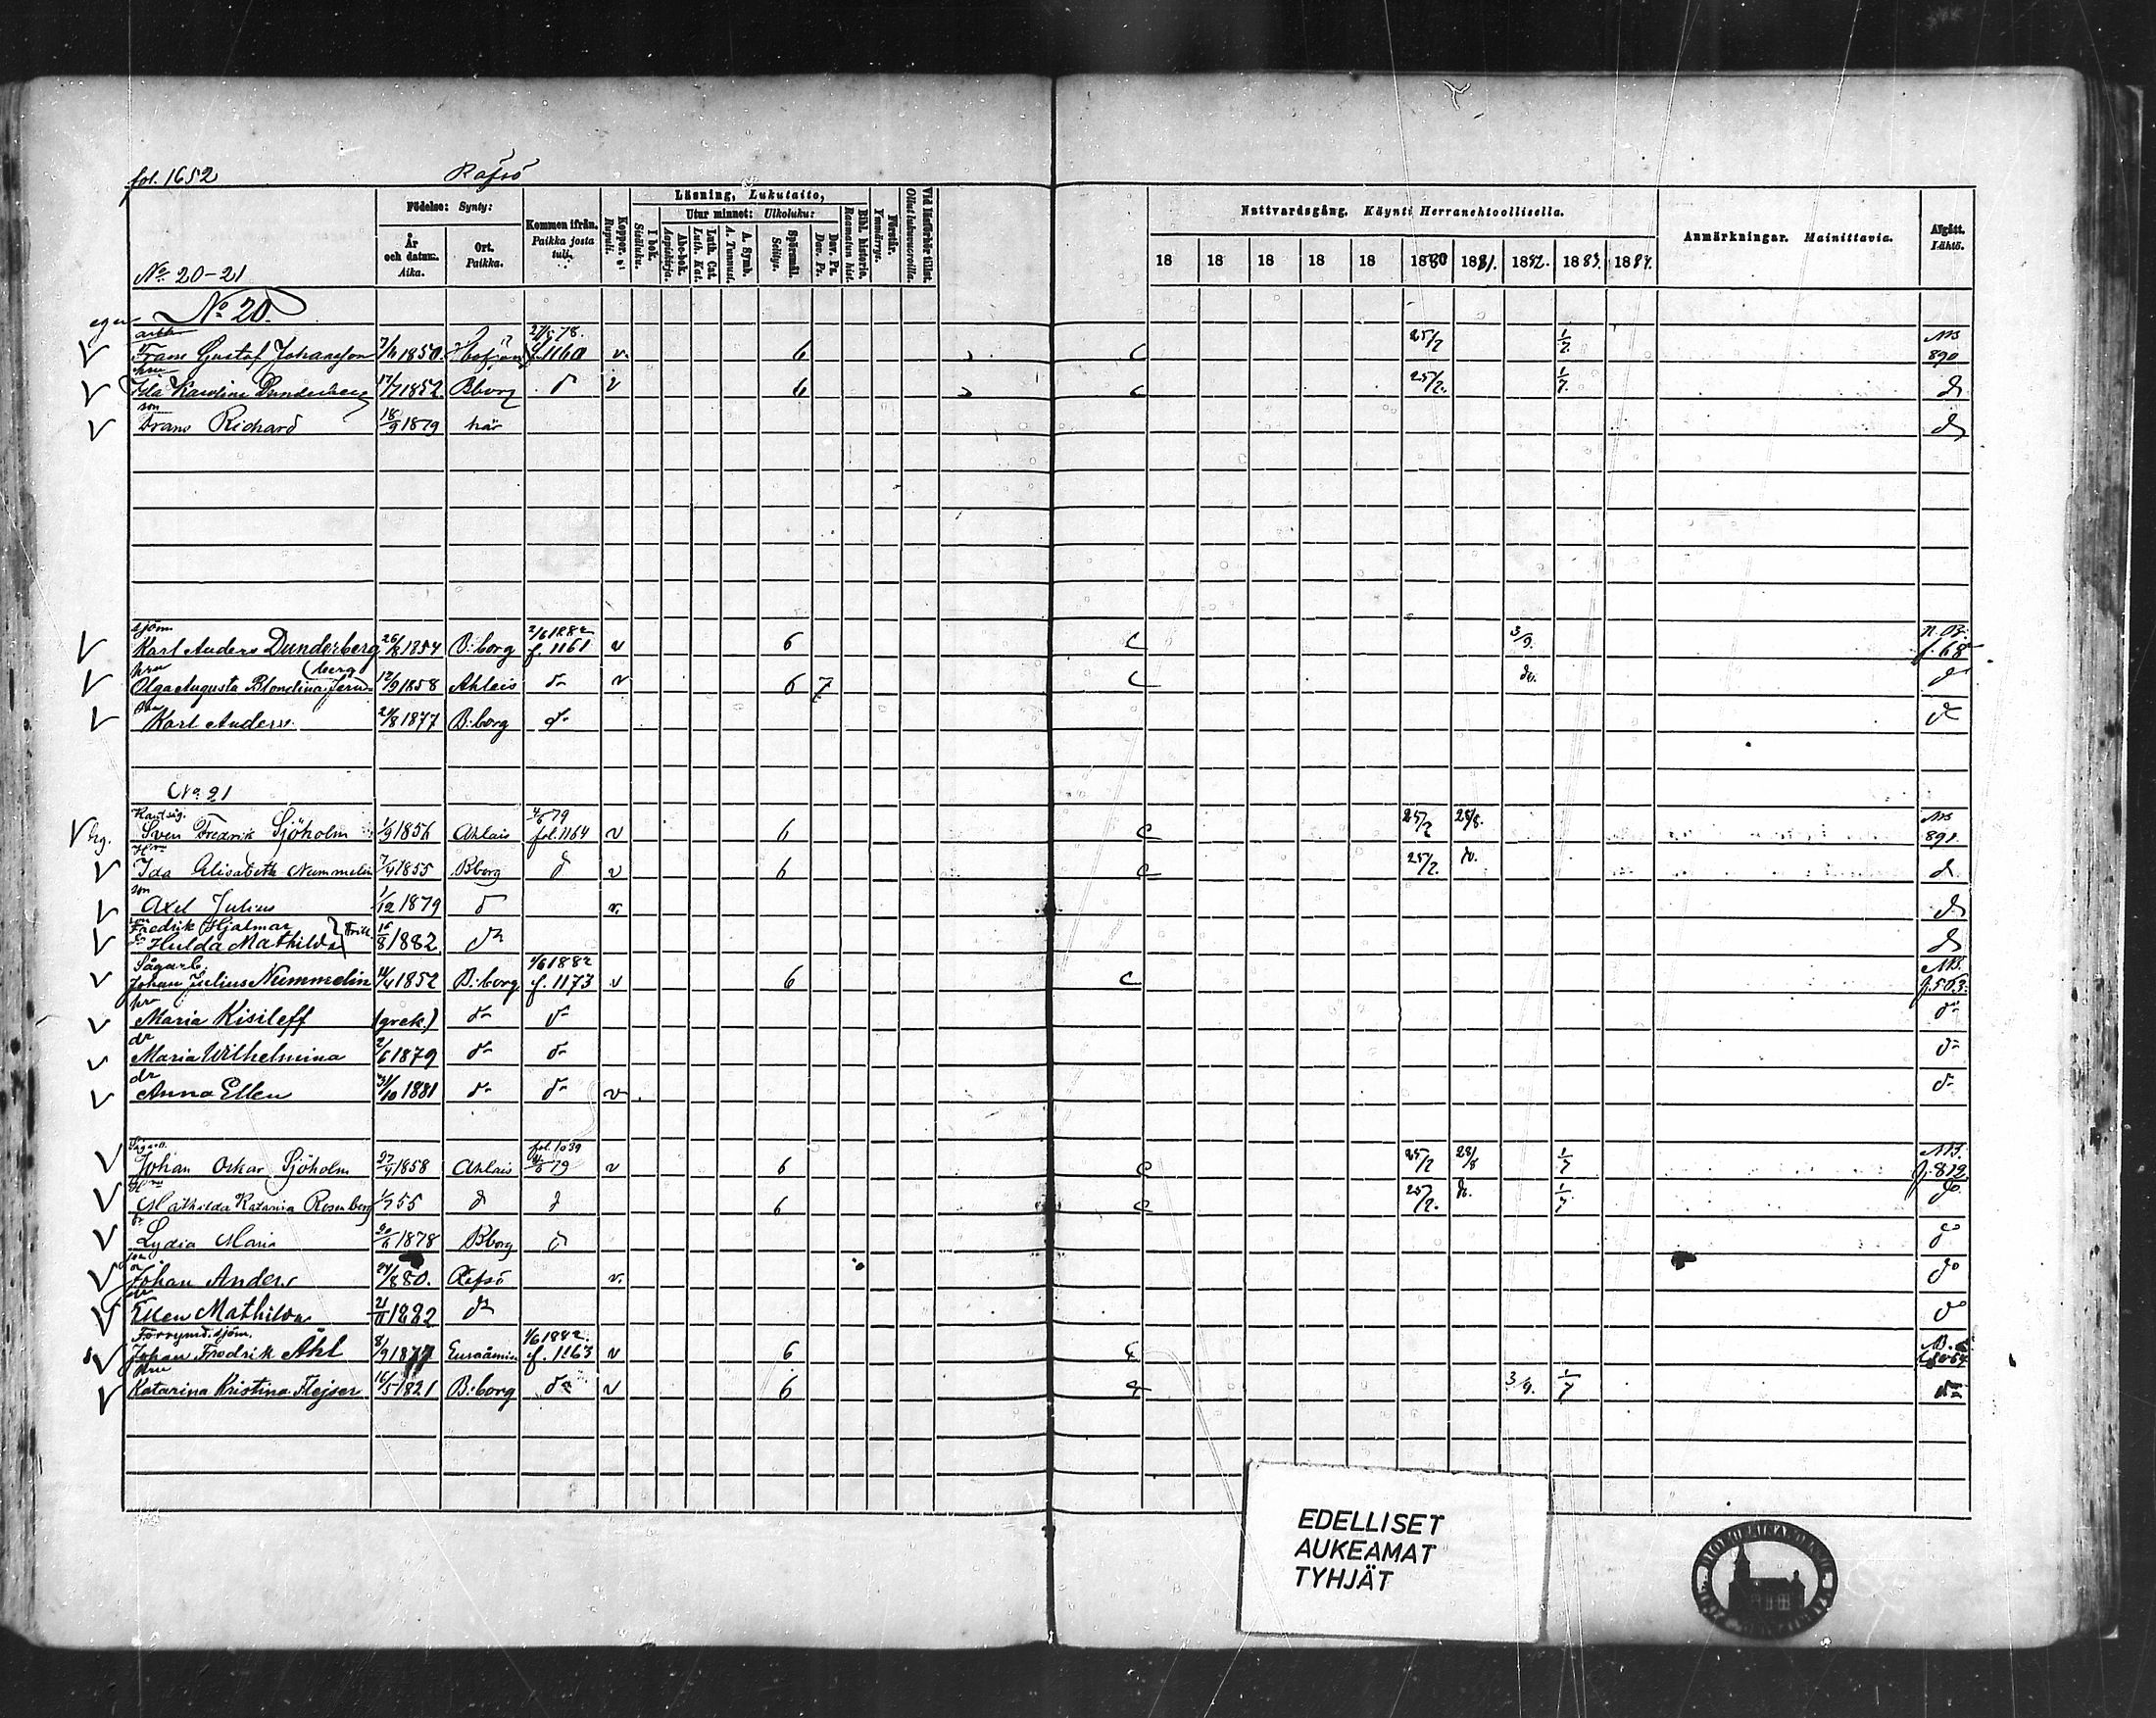 fol. 1652 Räfsö
Födelse: Synty:
År och datum. Aika.
Ort. Paikka.
Kommen ifrån. Paikka josta tuli.
Koppor. Rupuli.
Läsning, Lukutaito,
I bok. Sisäluku.
Utur minnet: Ulkoluku:
Abc-bok. Aapiskirja.
Luth. Cat. Luth. Kat.
A. Symb. A. Tunnust.
Spörsmål. Selitys.
Dav. Ps. Dav. Ps.
Bibl. historia. Raamatun hist.
Förstår. Ymmärrys.
Vid läsförhör tillst. Ollut lukuvuoroilla.
Nattvardsgång. Käynti Herranehtoollisella.
18 18 18 18 18 1880 1881. 1882. 1883. 1884.
Anmärkningar. Mainittavia.
Afgått. Lähtö.
No 20-21
No 20.
Frans Gustaf Johansson 1850 f. 1160 v. 6 25/2 1/7 890
hru
Ida Karolina Dunderberg 17/7 1852. Bborg d v 6 25/2. 1/7. do
son
Frans Richard 18/9 1879 här do
sjöm.
Karl Anders Dunderberg 26/8 1854 B:borg 2/6 1882 f. 1161 v 6 C 3/9. f. 68
hru
Olga Augusta Blondina Jern= (berg 12/9 1858 Ahlais do v 6 7 C do. do
Karl Anders. 21/8 1877 B:borg do do
No 21
Sven Fredrik Sjöholm 1/9 1856 Ahlais 4/6 79 fol. 1164 v 6 C 25/2 28/8. 891.
Ida Elisabeth Nummelin 7/4 1855 Bborg d v 6 C 25/2. do. do
son
Axel Julius 1/12 1879 d v. do
son
Fredrik Hjalmar
Hulda Mathilda 16/8 1882 do do
Sågarb.
Johan Julius Nummelin 14/4 1852 B:borg 1/6 1882 f. 1173 v 6 C f. 563.
hru
Maria Kisileff (grek.) do do do
dr
Maria Wilhelmina 2/6 1879 do do do
dr
Anna Ellen 31/10 1881 do do v do
Johan Oskar Sjöholm 27/4 1858 Ahlais fol. 1039 4/6 79 v 6 C 25/2 28/8 1/7 f. 819
Mathilda Katarina Rosenberg 1/7 55 d d 6 C 25/2. do. 1/7 do.
Lydia Maria 20/6 1878 Bborg d do
son
Johan Anders 24/1 880. Räfsö v. do
dr
Ellen Mathilda 21/11 1882 do do
Försvund. sjöm.
Johan Fredrik Ahl 8/9 18 Euraåminne 1/6 1882. f. 1163 v 6
hru
Katarina Kristina Flejser 16/5 1821 B:borg do v 6 3/9. 1/7 do
EDELLISET
AUKEAMAT
TYHJÄT